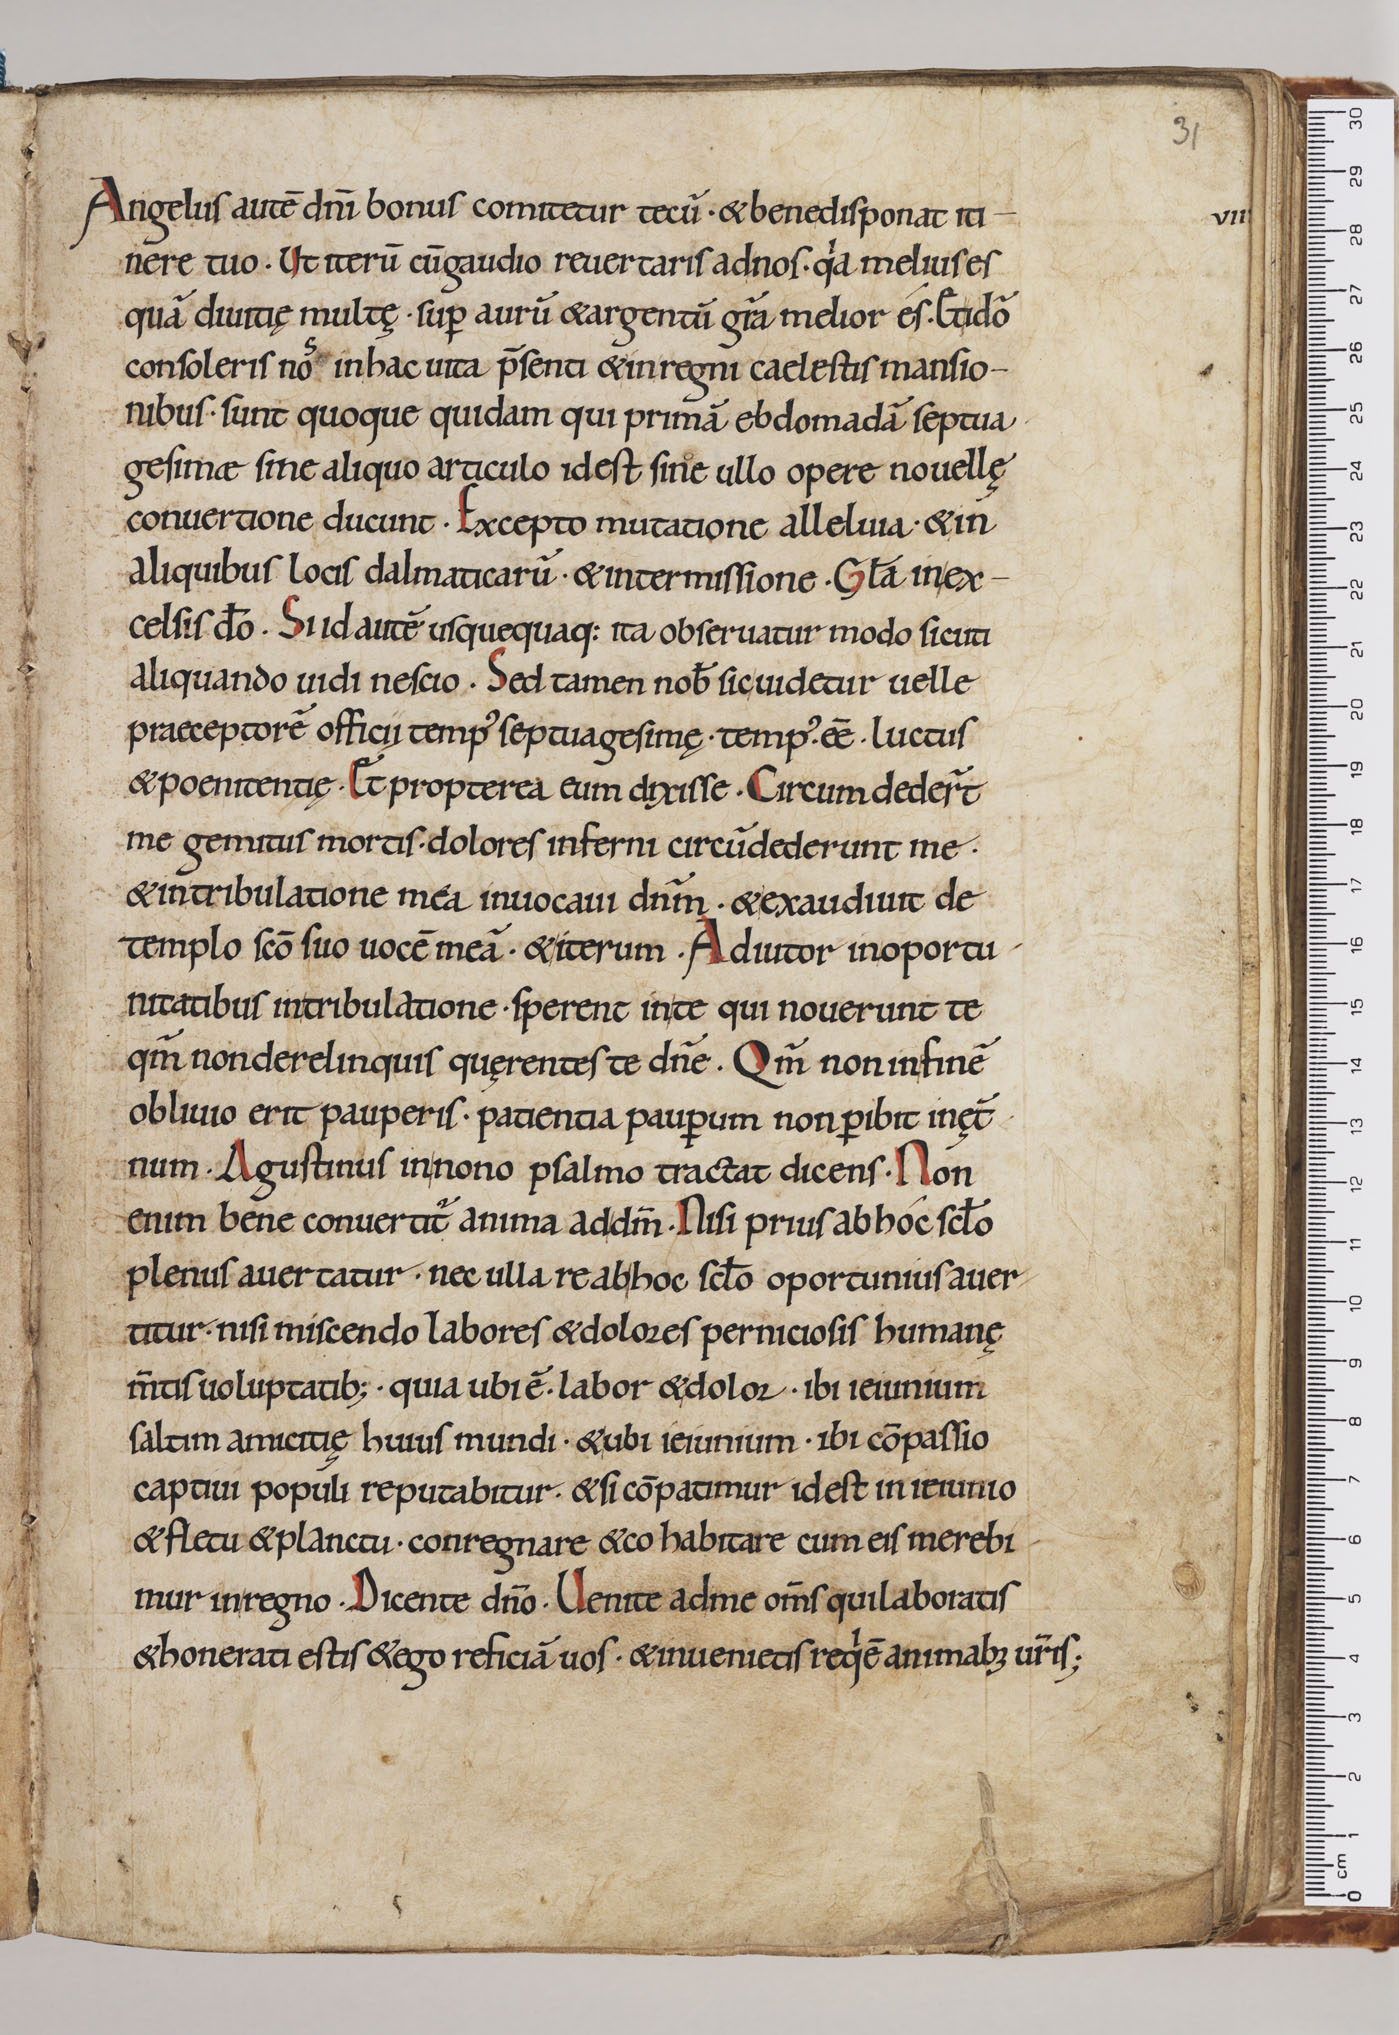 31
Angelus autē dn̄i bonus comitetur tecū · & benedisponat iti-
viii
nere tuo · Ut iterū cū gaudio reuertaris ad nos · qͥa melius es
quā diuitię multę · suꝑ aurū & argentū gr̄a melior es · Et idō
consoleris nos in hac uita p̄senti & in regni caelestis mansio-
nibus · sunt quoque quidam qui primā ebdomadā septua
gesimæ sine aliquo articulo id est sine ullo opere nouellę
conuertione ducunt · Excepto mutatione alleluia · & in
aliquibus locis dalmaticarū · & intermissione · Gl̄a in ex-
celsis dō · Si id autē usquequaq: ita obseruatur modo sicuti
aliquando uidi nescio · Sed tamen nob̄ sic uidetur uelle
praeceptorē officii temp᾿ septuagesimę · temp᾿ · eē · luctus
& poenitentię · Et propterea eum dixisse · Circumdeder̄t
me gemitus mortis · dolores inferni circūdederunt me ·
& in tribulatione mea inuocaui dn̄m · & exaudiuit de
templo sc̄o suo uocē meā · & iterum · Adiutor in oportu
nitatibus in tribulatione · sperent in te qui nouerunt te
qm̄ non derelinquis quęrentes te dn̄e · Qm̄ non in finē
obliuio erit pauperis · patientia pauꝑum non ꝑibit in ęt̄
num · Agustinus in nono psalmo tractat dicens · Non
enim bene conuertit᷑ anima ad dm̄ · Nisi prius ab hoc scl̄o
plenus auertatur · nec ulla re ab hoc scl̄o oportunius auer
titur · nisi miscendo labores & dolores perniciosis humanę
m̄tis uoluptatib; · quia ubi ē · labor & dolor · ibi ieiunium
saltim amicitię huius mundi · & ubi ieiunium · ibi cōpassio
captiui populi reputabitur · & si cōpatimur id est in ieiunio
& fletu & planctu · conregnare & cohabitare cum eis merebi
mur in regno · Dicente dn̄o · Uenite ad me om̄s qui laboratis
& honerati estis & ego reficiā uos · & inuenietis reqͥē animabꝫ ur̄is;